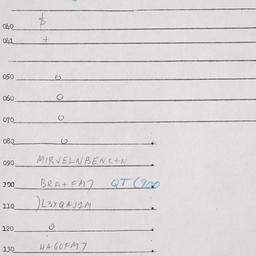 040 $
041 +
050 0
060 0
070 0
080 0
090 MIRVELNBENC+N
100 BRA+FM7 QT (900
110 )L3XQAJ2M
120 0
130 HAGOFM7